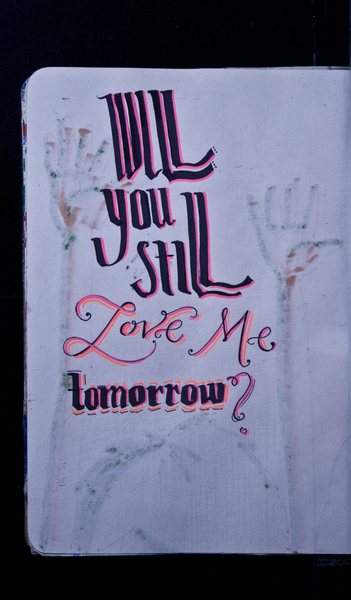 WILL
you
still
Love Me
tomorrow?